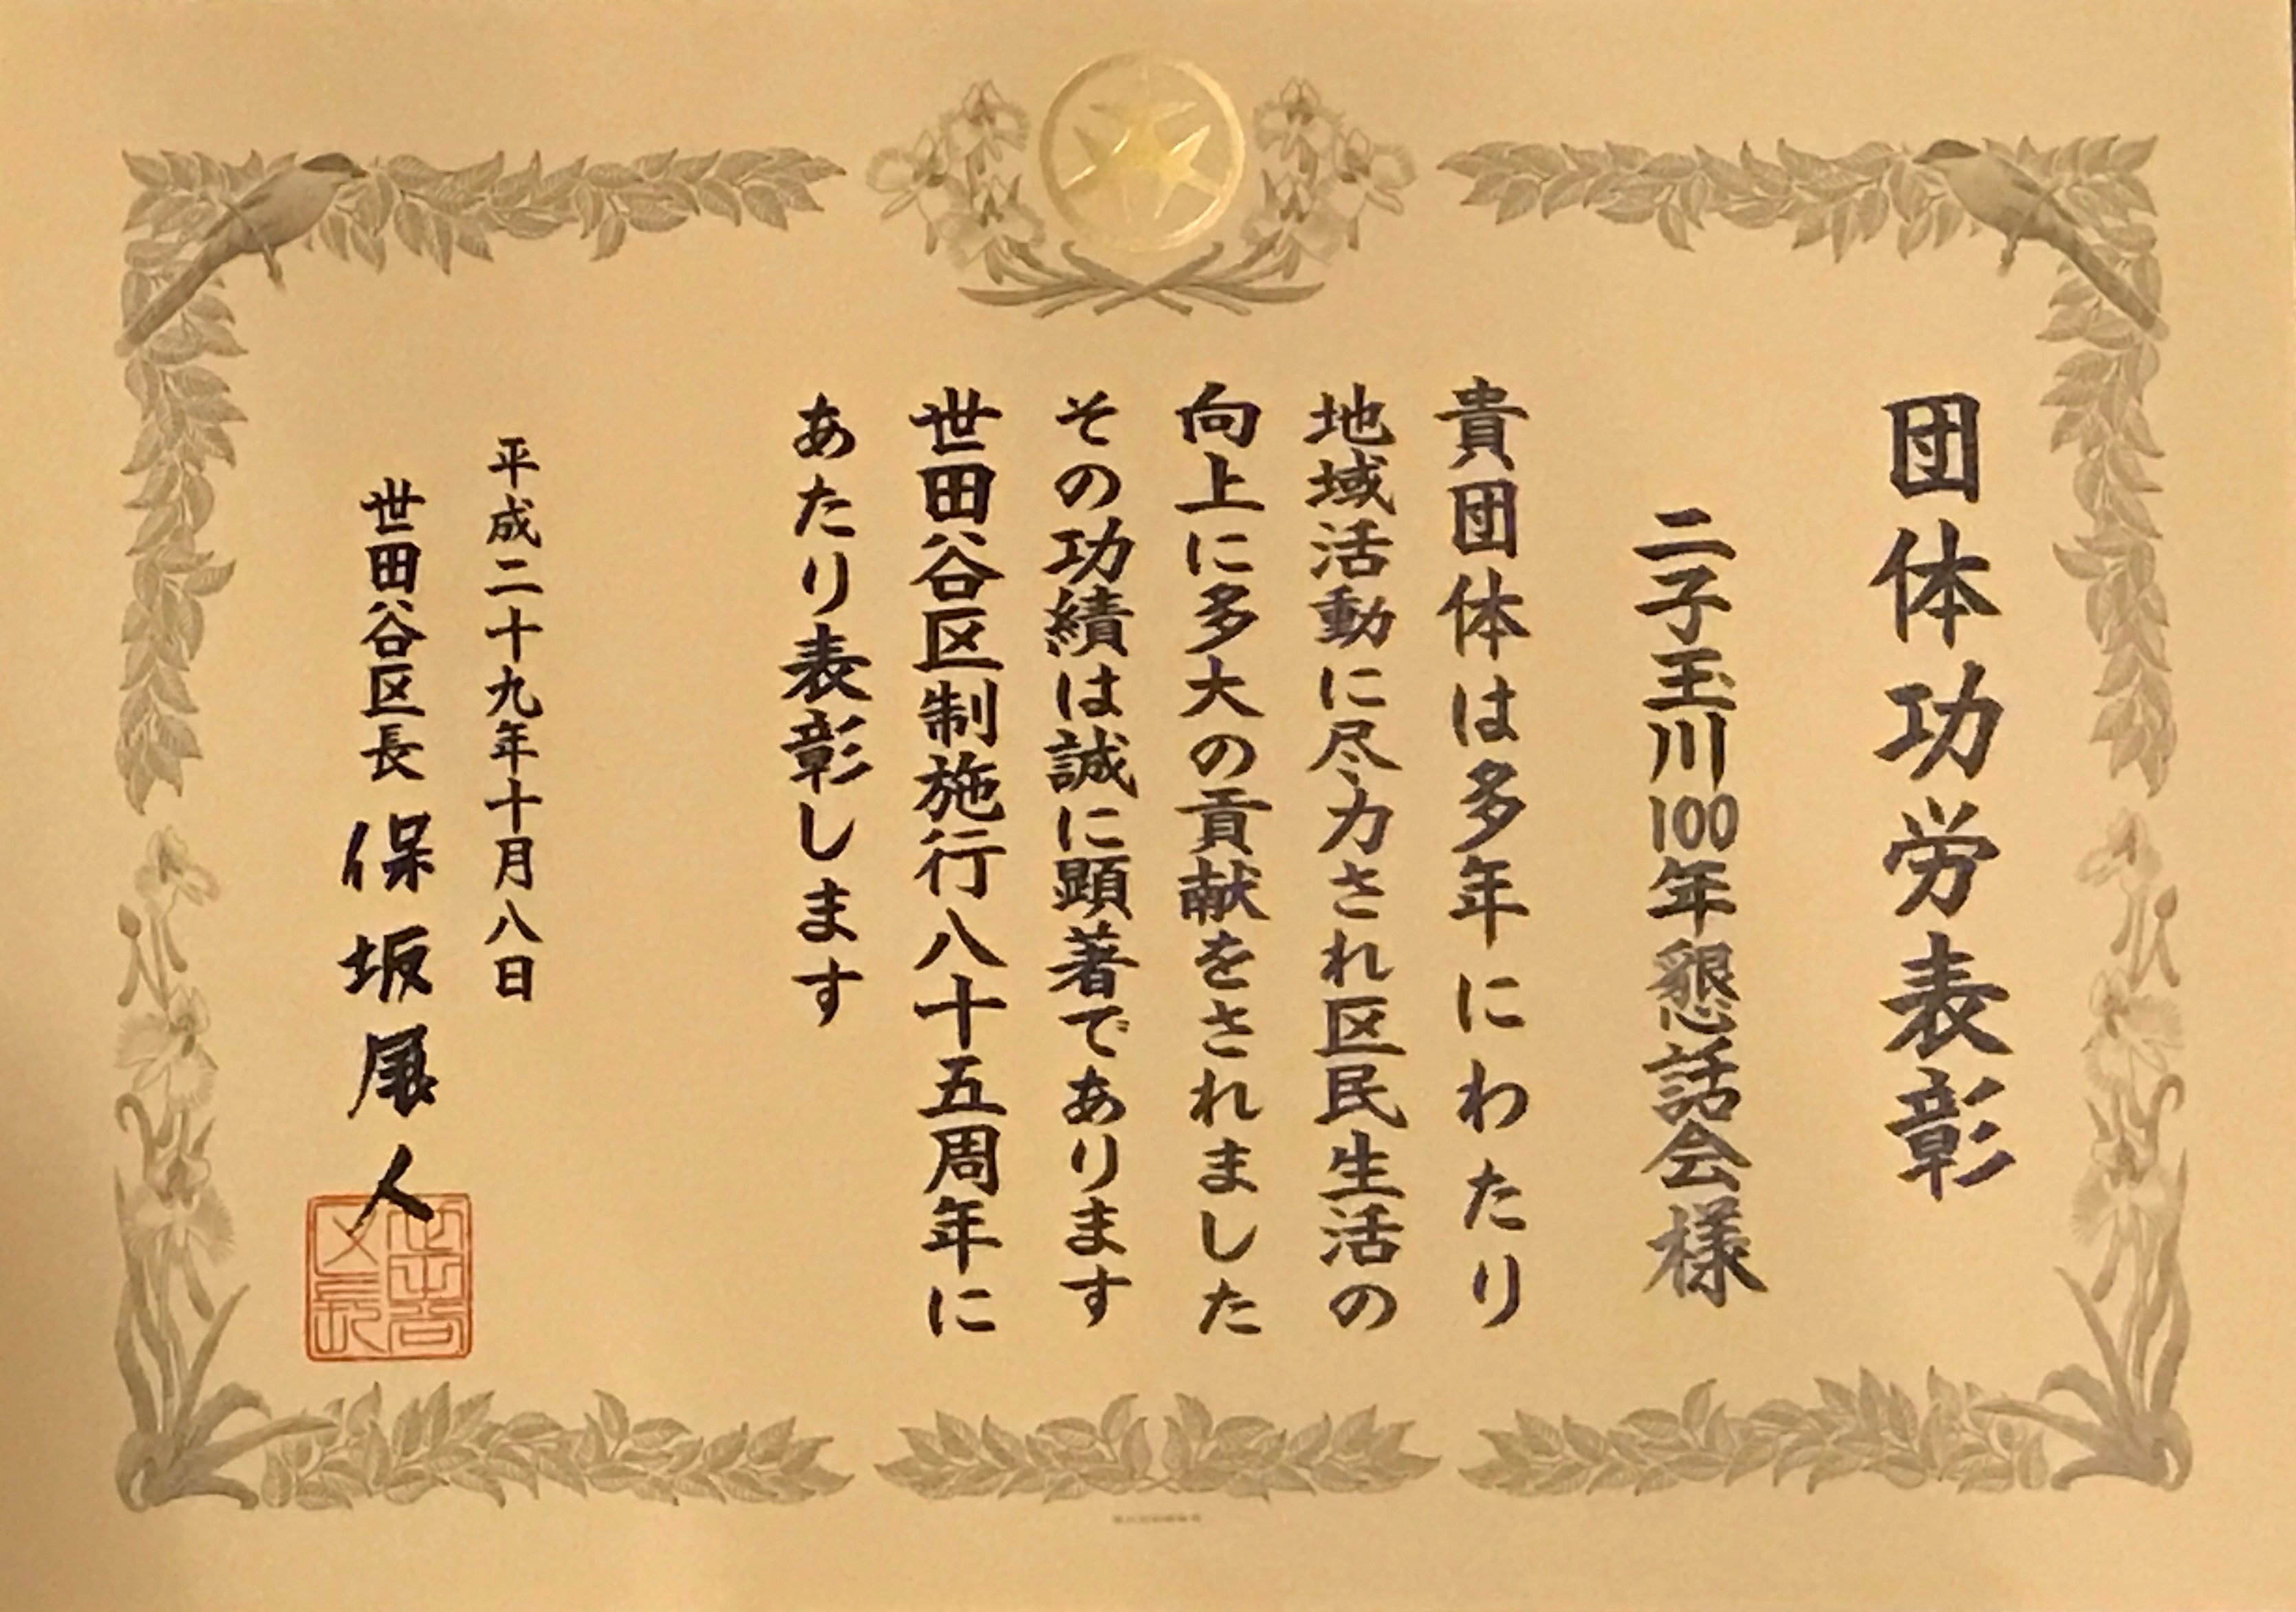 団体功労表彰
二子玉川100年懇話会様
貴団体は多年にわたり
地域活動に尽力され区民生活の
向上に多大の貢献をされました
その功績は誠に顕著であります
世田谷区制施行八十五周年に
あたり表彰します
平成二十九年十月八日
世田谷区長 保坂展人